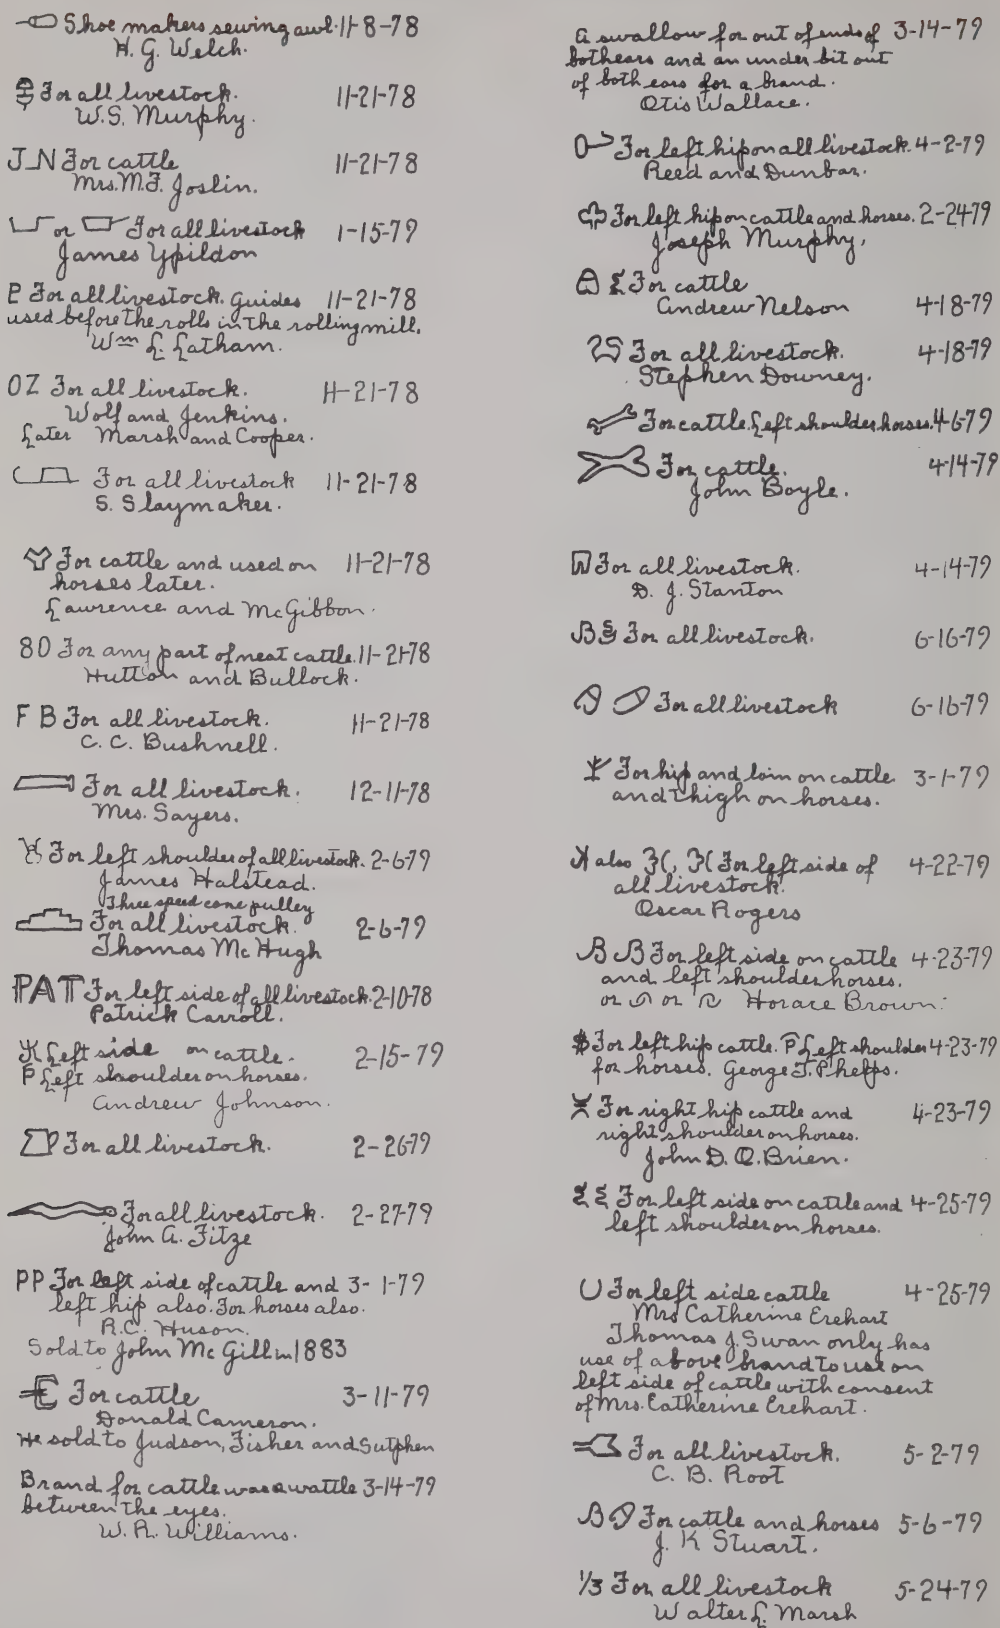 Shoe makers sewing awl. 11-8-78
H. G. Welch.
For all livestock. 11-21-78
W.S. Murphy.
J_N For cattle 11-21-78
Mrs. M.F. Joslin.
or For all livestock 1-15-79
James Ypildon
P For all livestock. Guides 11-21-78
used before the rolls in the rolling mill.
Wm L. Latham.
OZ For all livestock. 11-21-78
Wolf and Jenkins.
Later Marsh and Cooper.
For all livestock 11-21-78
S. Slaymaker.
For cattle and used on 11-21-78
horses later.
Lawrence and McGibbon.
80 For any part of neat cattle. 11-21-78
Hutton and Bullock.
F B For all livestock. 11-21-78
C. C. Bushnell.
For all livestock. 12-11-78
Mrs. Sayers.
For left shoulder of all livestock. 2-6-79
James Halstead.
Three speed cone pulley
For all livestock. 2-6-79
Thomas McHugh
PAT For left side of all livestock. 2-10-78
Patrick Carroll.
Left side on cattle. 2-15-79
P Left shoulder on horses.
Andrew Johnson.
For all livestock. 2-26-79
For all livestock. 2-27-79
John A. Fitze
PP For left side of cattle and 3-1-79
left hip also. For horses also.
R.C. Huson.
Sold to John McGill in 1883
For cattle 3-11-79
Donald Cameron.
He sold to Judson, Fisher and Sutphen
Brand for cattle was a wattle 3-14-79
between the eyes.
W. R. Williams.
A swallow for out of ends of 3-14-79
both ears and an under bit out
of both ears for a brand.
Otis Wallace.
For left hip on all livestock. 4-2-79
Reed and Dunbar.
For left hip on cattle and horses. 2-24-79
Joseph Murphy.
For cattle
Andrew Nelson 4-18-79
For all livestock. 4-18-79
Stephen Downey.
For cattle. Left shoulder horses. 4-6-79
For cattle. 4-14-79
John Boyle.
For all livestock. 4-14-79
D. J. Stanton
For all livestock. 6-16-79
For all livestock 6-16-79
For hip and loin on cattle 3-1-79
and thigh on horses.
also For left side of 4-22-79
all livestock.
Oscar Rogers
B B For left side on cattle 4-23-79
and left shoulder horses.
or or Horace Brown.
$ For left hip cattle. P Left shoulder 4-23-79
for horses. George T. Phelps.
For right hip cattle and 4-23-79
right shoulder on horses.
John D. O. Brien.
For left side on cattle and 4-25-79
left shoulder on horses.
U For left side cattle 4-25-79
Mrs Catherine Erehart
Thomas J. Swan only has
use of above brand to use on
left side of cattle with consent
of Mrs. Catherine Erehart.
For all livestock. 5-2-79
C. B. Root
B For cattle and horses 5-6-79
J. K Stuart.
1/3 For all livestock 5-24-79
Walter L. Marsh